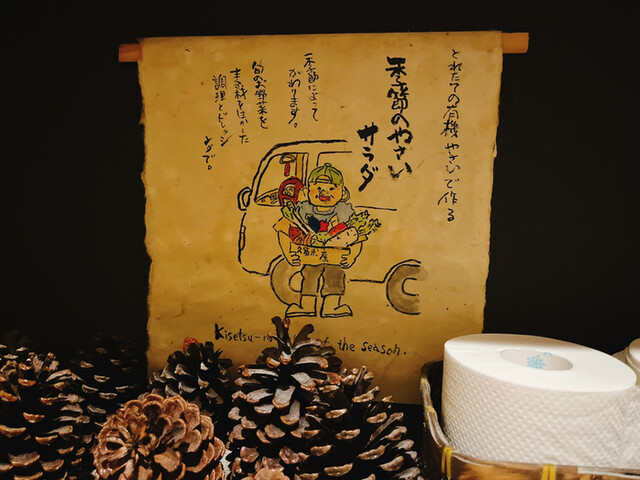 とれたての有機やさいで作る
季節のやさい
サラダ
季節によって
かわります。
旬のお野菜を
素材をいかした
調理とドレッシ
ングで。
Kisetsu-no the season.